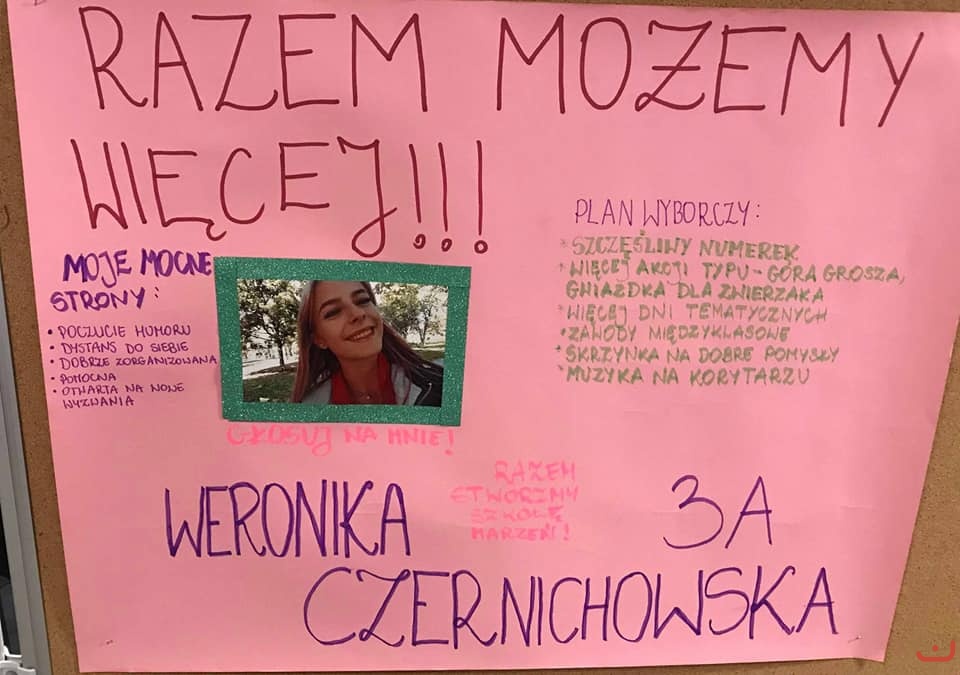 RAZEM MOŻEMY
WIĘCEJ!!!
MOJE MOCNE
STRONY:
• POCZUCIE HUMORU
• DYSTANS DO SIEBIE
• DOBRZE ZORGANIZOWANA
• POMOCNA
• OTWARTA NA NOWE
WYZWANIA
GŁOSUJ NA MNIE!
PLAN WYBORCZY:
* SZCZĘŚLIWY NUMEREK
* WIĘCEJ AKCJI TYPU - GÓRA GROSZA,
GWIAZDKA DLA ZWIERZAKA
* WIĘCEJ DNI TEMATYCZNYCH
* ZAWODY MIĘDZYKLASOWE
* SKRZYNKA NA DOBRE POMYSŁY
* MUZYKA NA KORYTARZU
RAZEM
STWÓRZMY
SZKOŁĘ
MARZEŃ!
WERONIKA 3A
CZERNICHOWSKA